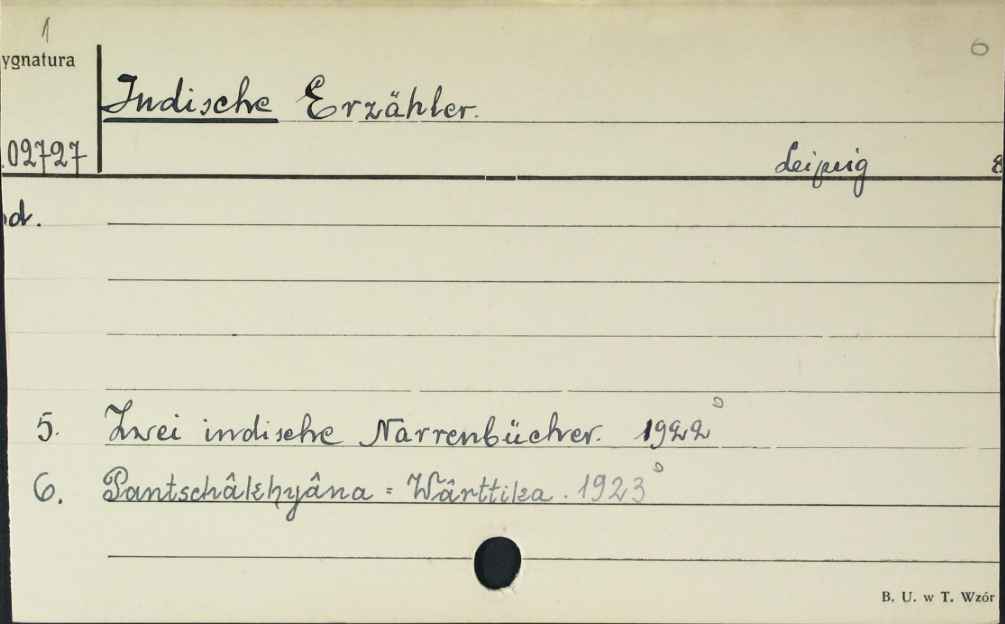 1
6
ygnatura
Indische Erzähler.
02727
Leipzig 8
d.
5. Zwei indische Narrenbücher. 1922
6. Pantschâkhyâna = Wârttika. 1923
B. U. w T. Wzór